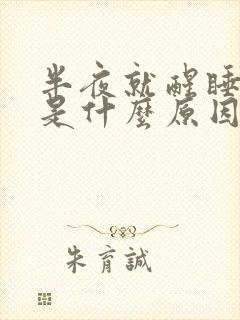 半夜就醒睡
是什麼原因
朱育誠